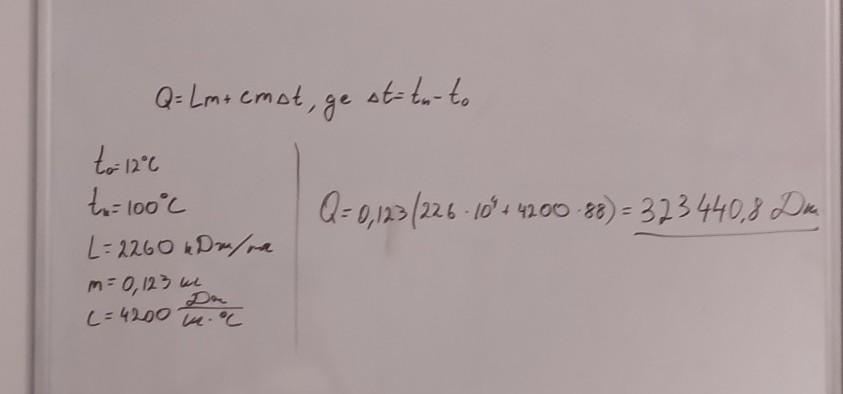 Q = Lm + cmΔt, ge Δt = tк - t₀
t₀ = 12°C
tк = 100°C
L = 2260 кДж/кг
m = 0,123 кг
c = 4200 Дж/кг·°C
Q = 0,123(226·10⁴ + 4200·88) = 323440,8 Дж